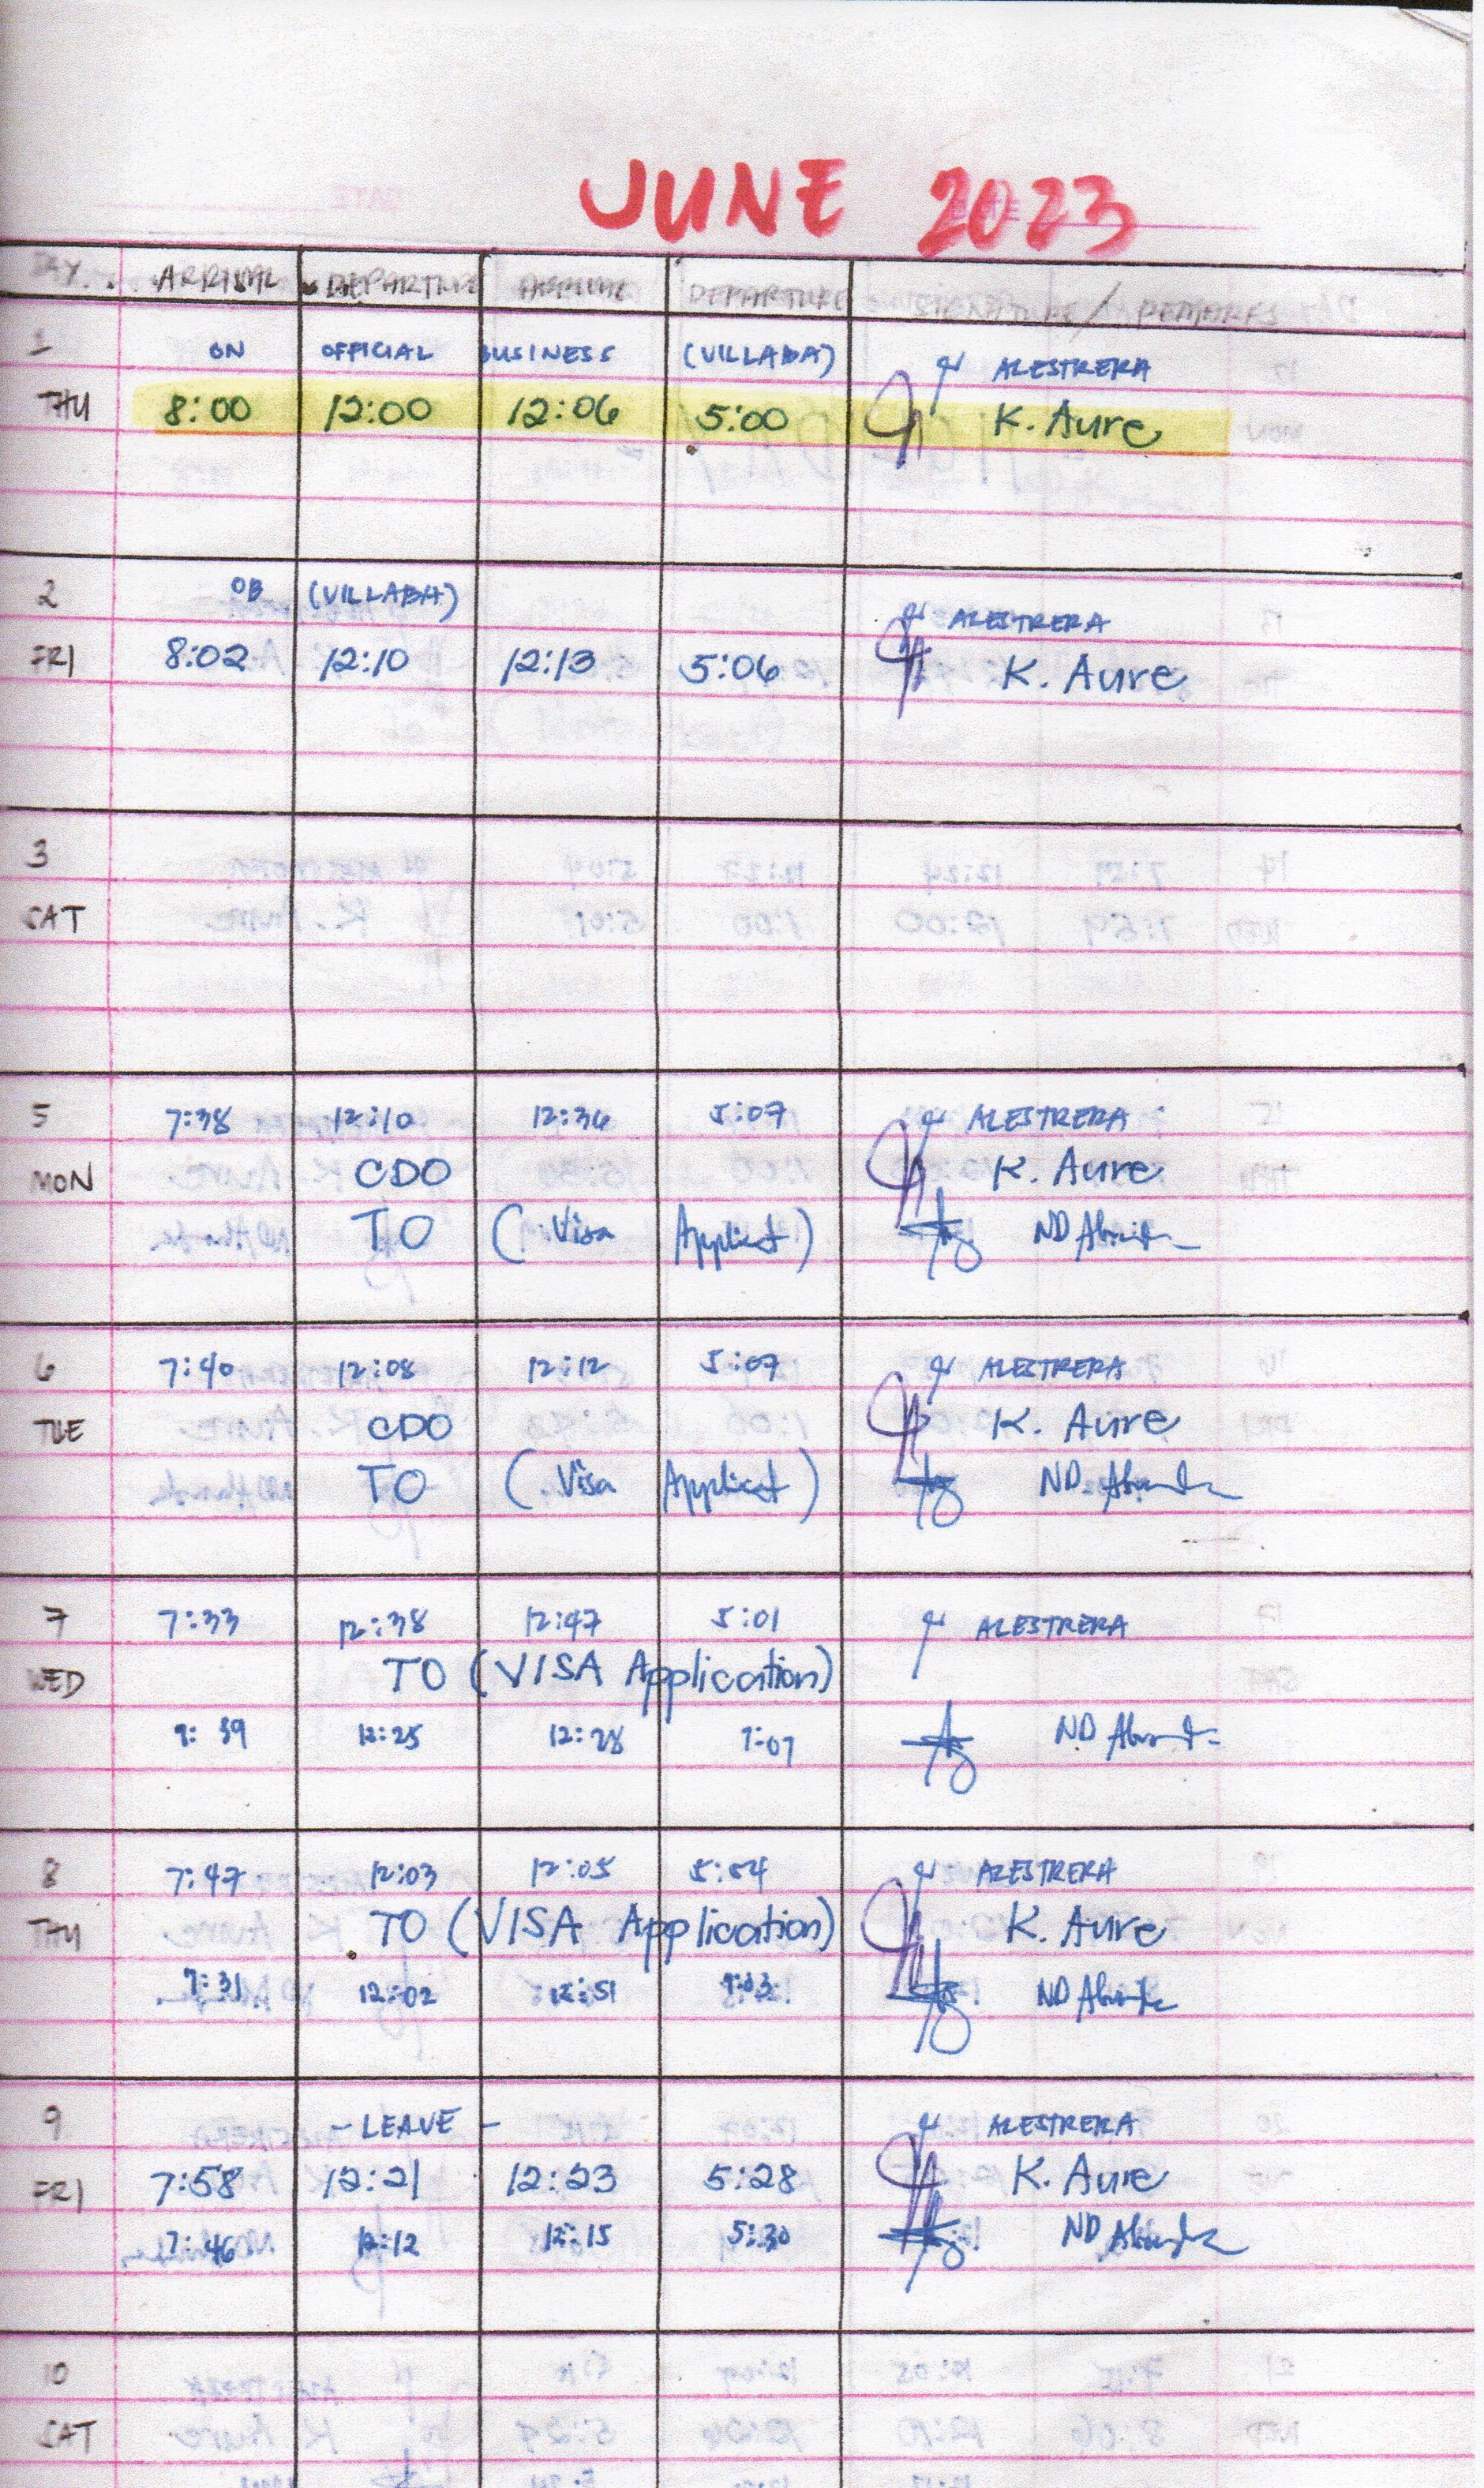 JUNE 2023
DAY ARRIVAL DEPARTURE ARRIVAL DEPARTURE SIGNATURE / REMARKS
1 ON OFFICIAL BUSINESS (VILLABA) ALESTRERA
THU 8:00 12:00 12:06 5:00 K. Aure
2 OB (VILLABA) ALESTRERA
FRI 8:02 12:10 12:13 5:06 K. Aure
3
SAT
5 7:38 12:10 12:36 5:07 ALESTRERA
MON CDO K. Aure
TO (Visa ) ND
6 7:40 12:08 12:12 5:07 ALESTRERA
TUE CDO K. Aure
TO (Visa ) ND
7 7:33 12:38 12:47 5:01 ALESTRERA
WED TO (VISA Application)
12:25 12:28 ND
8 7:47 12:03 12:05 5:54 ALESTRERA
THU TO (VISA Application) K. Aure
7:31 12:02 12:51 ND
9 - LEAVE - ALESTRERA
FRI 7:58 12:21 12:23 5:28 K. Aure
7:46 12:12 12:15 5:30 ND
10
SAT